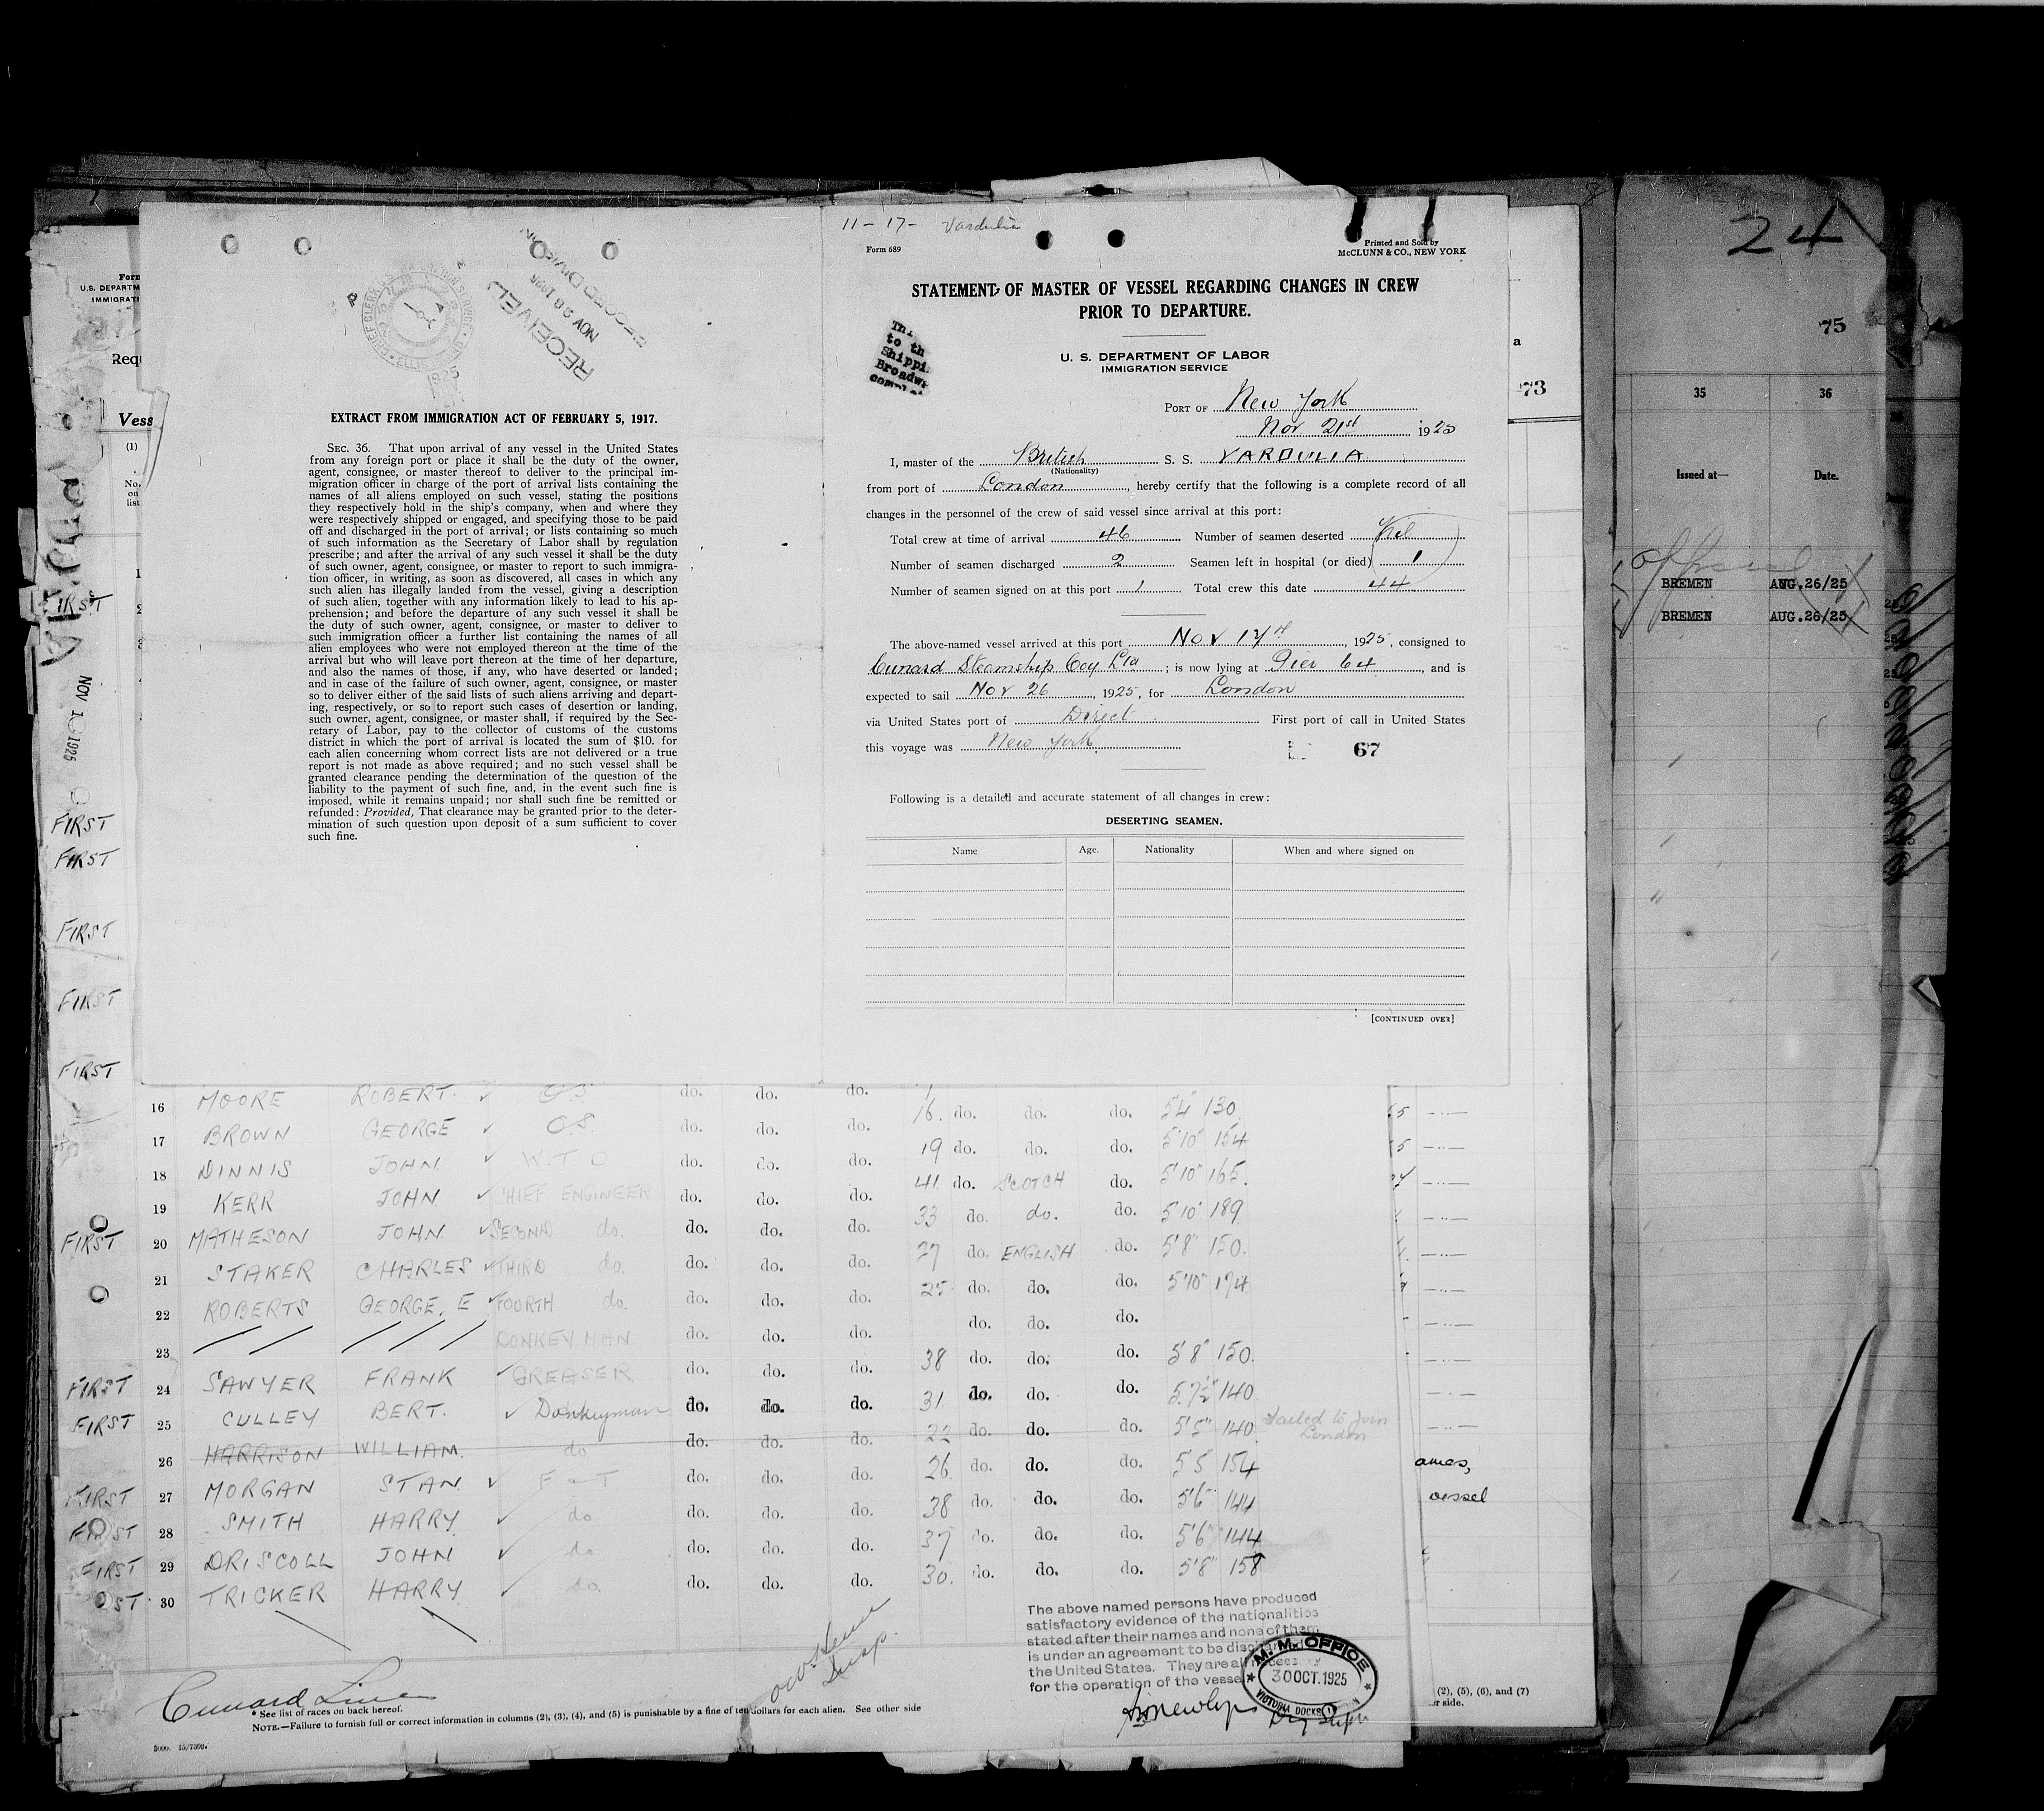 11-17- Vardulia
Form 689
Printed and Sold by
McCLUNN & CO., NEW YORK
STATEMENT OF MASTER OF VESSEL REGARDING CHANGES IN CREW
PRIOR TO DEPARTURE.
U. S. DEPARTMENT OF LABOR
IMMIGRATION SERVICE
PORT OF New York
Nov. 21st 1925
I, master of the British S. S. VARDULIA
(Nationality)
from port of London, hereby certify that the following is a complete record of all
changes in the personnel of the crew of said vessel since arrival at this port:
Total crew at time of arrival 46 Number of seamen deserted Nil
Number of seamen discharged 2 Seamen left in hospital (or died) 1
Number of seamen signed on at this port 1 Total crew this date 44
The above-named vessel arrived at this port Nov 17th, 1925, consigned to
Cunard Steamship Coy Ltd; is now lying at Pier 64, and is
expected to sail Nov 26, 1925, for London
via United States port of Direct First port of call in United States
this voyage was New York
67
Following is a detailed and accurate statement of all changes in crew:
DESERTING SEAMEN.
Name Age. Nationality When and where signed on
[CONTINUED OVER]
RECEIVED
NOV 28 1925
RECORD DIVISION
1925
EXTRACT FROM IMMIGRATION ACT OF FEBRUARY 5, 1917.
SEC. 36. That upon arrival of any vessel in the United States
from any foreign port or place it shall be the duty of the owner,
agent, consignee, or master thereof to deliver to the principal im-
migration officer in charge of the port of arrival lists containing the
names of all aliens employed on such vessel, stating the positions
they respectively hold in the ship's company, when and where they
were respectively shipped or engaged, and specifying those to be paid
off and discharged in the port of arrival; or lists containing so much
of such information as the Secretary of Labor shall by regulation
prescribe; and after the arrival of any such vessel it shall be the duty
of such owner, agent, consignee, or master to report to such immigra-
tion officer, in writing, as soon as discovered, all cases in which any
such alien has illegally landed from the vessel, giving a description
of such alien, together with any information likely to lead to his ap-
prehension; and before the departure of any such vessel it shall be
the duty of such owner, agent, consignee, or master to deliver to
such immigration officer a further list containing the names of all
alien employees who were not employed thereon at the time of the
arrival but who will leave port thereon at the time of her departure,
and also the names of those, if any, who have deserted or landed;
and in case of the failure of such owner, agent, consignee, or master
so to deliver either of the said lists of such aliens arriving and depart-
ing, respectively, or so to report such cases of desertion or landing,
such owner, agent, consignee, or master shall, if required by the Sec-
retary of Labor, pay to the collector of customs of the customs
district in which the port of arrival is located the sum of $10. for
each alien concerning whom correct lists are not delivered or a true
report is not made as above required; and no such vessel shall be
granted clearance pending the determination of the question of the
liability to the payment of such fine, and, in the event such fine is
imposed, while it remains unpaid; nor shall such fine be remitted or
refunded: Provided, That clearance may be granted prior to the deter-
mination of such question upon deposit of a sum sufficient to cover
such fine.
24
75
73
35 36
Issued at— Date.
BREMEN AUG.26/25
BREMEN AUG.26/25
FIRST
FIRST
FIRST
FIRST
FIRST
16 MOORE ROBERT. O.S do. do. do. 16. do. do. do. 5'4" 130
17 BROWN GEORGE O.S. do. do. do. 19 do. do. do. 5'10" 154
18 DINNIS JOHN W.T.O do. do. do. 41 do. SCOTCH do. 5'10" 165.
19 KERR JOHN CHIEF ENGINEER do. do. do. 33 do. do. do. 5'10" 189
FIRST 20 MATHESON JOHN SECOND do. do. do. do. 27 do. ENGLISH do. 5'8" 150.
21 STAKER CHARLES THIRD do. do. do. do. 25 do. do. do. 5'10" 174
22 ROBERTS GEORGE. E FOURTH do. do. do. do. do. do. do.
23 DONKEYMAN do. do. do. 38 do. do. do. 5'8" 150.
FIRST 24 SAWYER FRANK GREASER do. do. do. 31 do. do. do. 5'7½" 140
FIRST 25 CULLEY BERT. Donkeyman do. do. do. 22 do. do. do. 5'5" 140 Failed to Join London
26 HARRISON WILLIAM. do do. do. do. 26 do. do. do. 5'5 154
FIRST 27 MORGAN STAN F & T do. do. do. 38 do. do. do. 5'6" 144
FIRST 28 SMITH HARRY do do. do. do. 37 do. do. do. 5'6" 144
FIRST 29 DRISCOLL JOHN do do. do. do. 30. do. do. do. 5'8" 158
30 TRICKER HARRY do. do. do. do.
The above named persons have produced
satisfactory evidence of the nationalities
stated after their names and none of them
is under an agreement to be
the United States. They are all
for the operation of the vessel
M. M. OFFICE
30 OCT. 1925
VICTORIA DOCKS
Cunard Line
* See list of races on back hereof.
NOTE.—Failure to furnish full or correct information in columns (2), (3), (4), and (5) is punishable by a fine of ten dollars for each alien. See other side
(2), (5), (6), and (7)